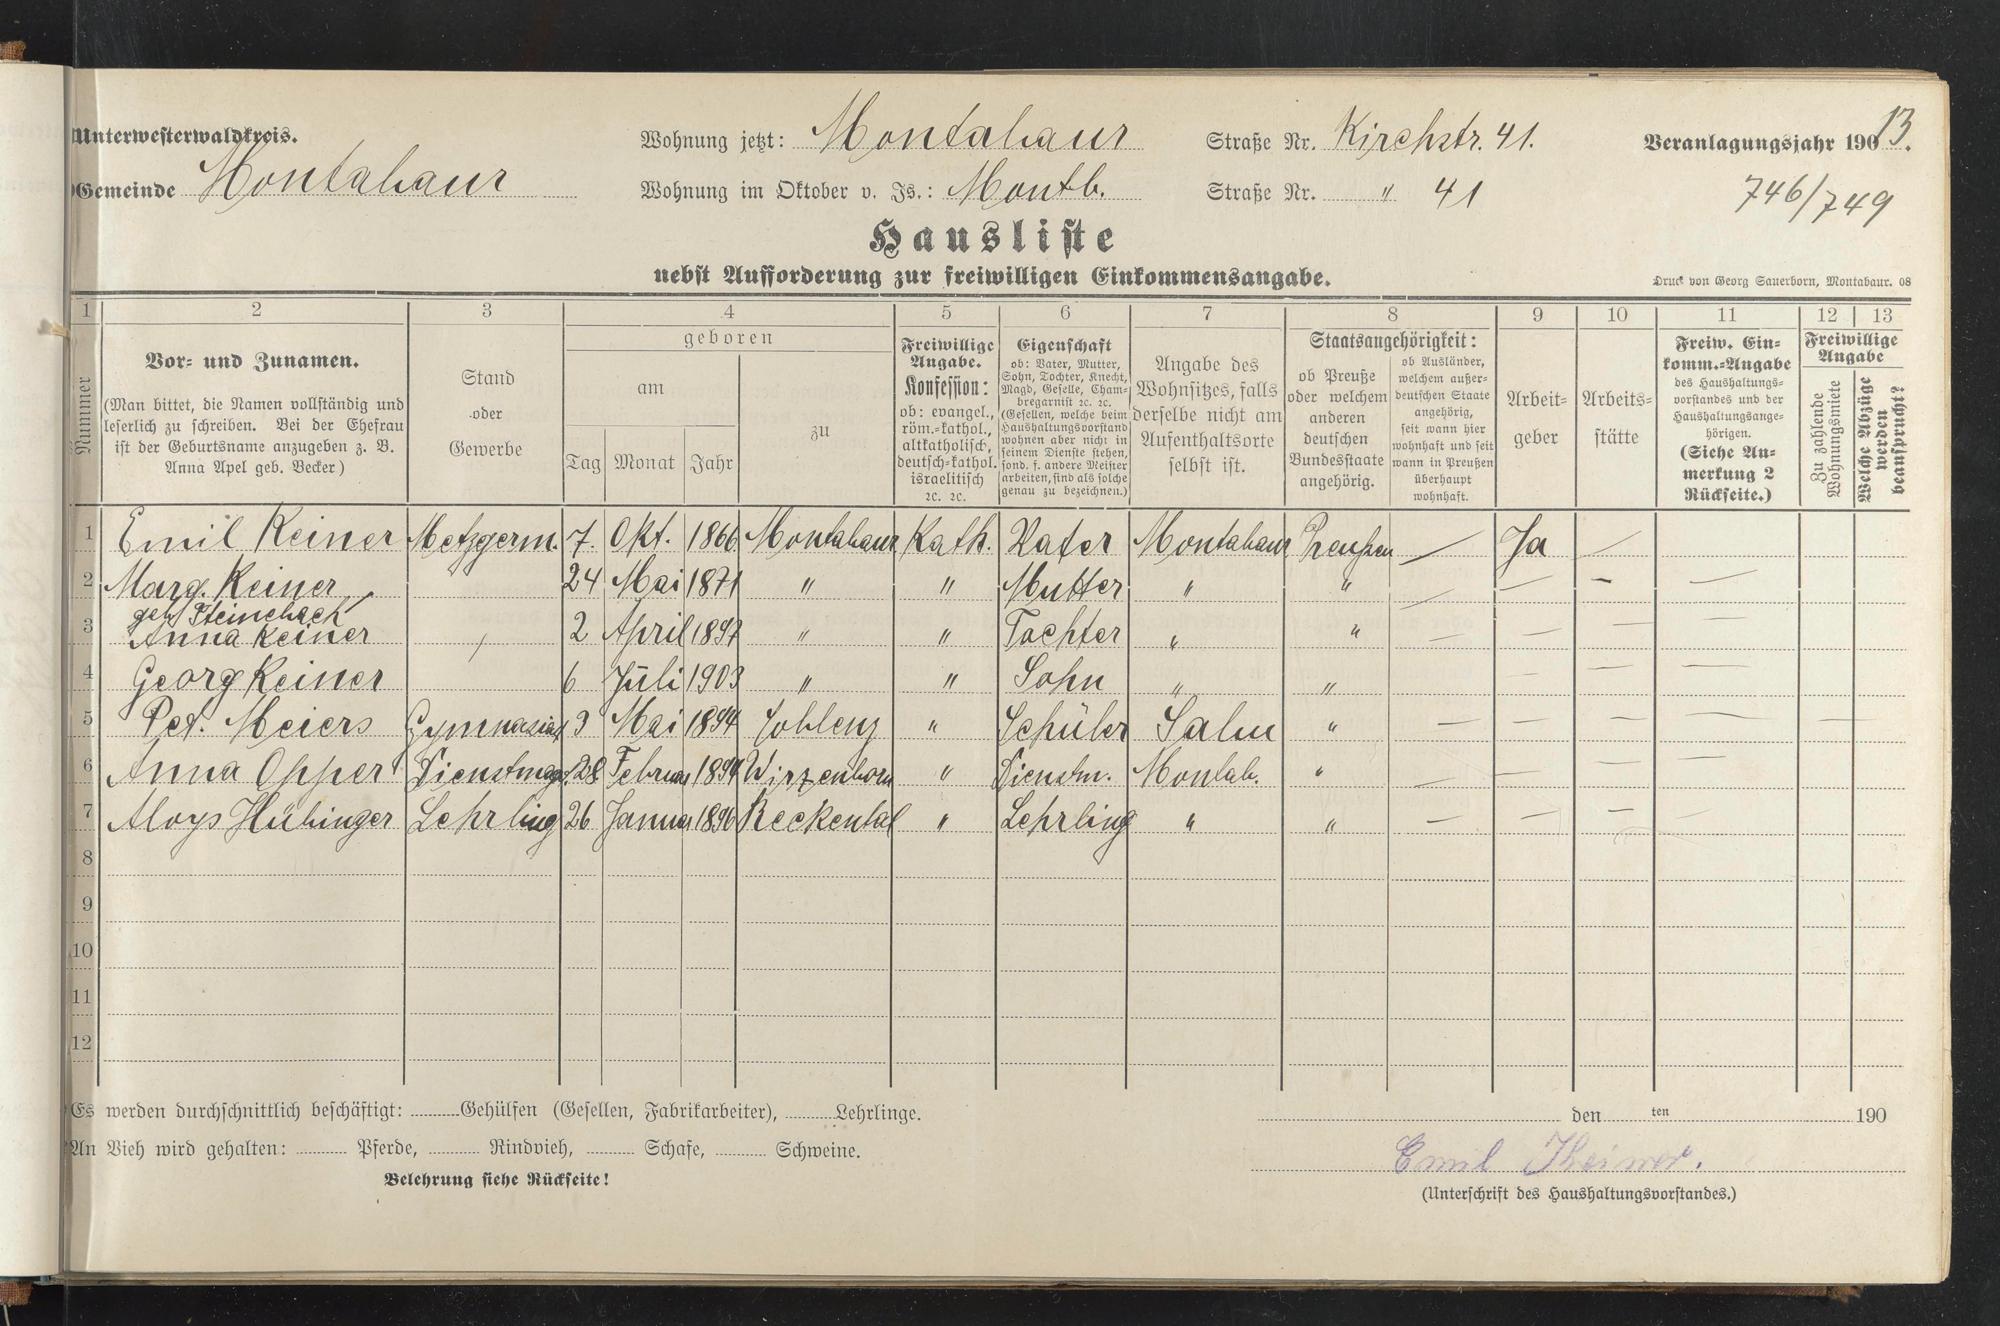 Unterwesterwaldkreis.
Wohnung jetzt: Montabaur Straße Nr. Kirchstr. 41. Veranlagungsjahr 190 13.
Gemeinde Montabaur
Wohnung im Oktober v. Js.: Montb. Straße Nr. " 41
746/749
Hausliste
nebst Aufforderung zur freiwilligen Einkommensangabe.
Druck von Georg Sauerborn, Montabaur. 08
1 2 3 4 5 6 7 8 9 10 11 12 13
Nummer
Vor- und Zunamen.
(Man bittet, die Namen vollständig und
leserlich zu schreiben. Bei der Ehefrau
ist der Geburtsname anzugeben z. B.
Anna Apel geb. Becker)
Stand
oder
Gewerbe
geboren
am
Tag Monat Jahr
zu
Freiwillige
Angabe.
Konfession:
ob: evangel.,
röm.-kathol.,
altkatholisch,
deutsch-kathol.
israelitisch
2c. 2c.
Eigenschaft
ob: Vater, Mutter,
Sohn, Tochter, Knecht,
Magd, Geselle, Cham-
bregarnist 2c. 2c.
(Gesellen, welche beim
Haushaltungsvorstand
wohnen aber nicht in
seinem Dienste stehen,
sond. f. andere Meister
arbeiten, sind als solche
genau zu bezeichnen.)
Angabe des
Wohnsitzes, falls
derselbe nicht am
Aufenthaltsorte
selbst ist.
Staatsangehörigkeit:
ob Preuße
oder welchem
anderen
deutschen
Bundesstaate
angehörig.
ob Ausländer,
welchem außer-
deutschen Staate
angehörig,
seit wann hier
wohnhaft und seit
wann in Preußen
überhaupt
wohnhaft.
Arbeit-
geber
Arbeits-
stätte
Freiw. Ein-
komm.-Angabe
des Haushaltungs-
vorstandes und der
Haushaltungsange-
hörigen.
(Siehe An-
merkung 2
Rückseite.)
Freiwillige
Angabe
Zu zahlende
Wohnungsmiete
Welche Abzüge
werden
beansprucht?
1 Emil Keiner Metzgerm. 7. Okt. 1866 Montabaur Kath. Vater Montabaur Preußen — Ja —
2 Marg. Keiner 24 Mai 1871 " " Mutter " " — — — —
geb. Steinebach
3 Anna Keiner 2 April 1897 " " Tochter " " — — — —
4 Georg Keiner 6 Juli 1903 " " Sohn " " — — — —
5 Pet. Meiers Gymnasiast 3 Mai 1894 Coblenz " Schüler Salm " — — — — —
6 Anna Opper Dienstmagd 28 Februar 1894 Wirzenborn " Dienstm. Montab. " — — — —
7 Aloys Hübinger Lehrling 26 Januar 1896 Reckental " Lehrling " " — — — —
8
9
10
11
12
Es werden durchschnittlich beschäftigt: Gehülfen (Gesellen, Fabrikarbeiter), Lehrlinge.
den ten 190
An Vieh wird gehalten: Pferde, Rindvieh, Schafe, Schweine.
Emil Kheiner.
Belehrung siehe Rückseite!
(Unterschrift des Haushaltungsvorstandes.)